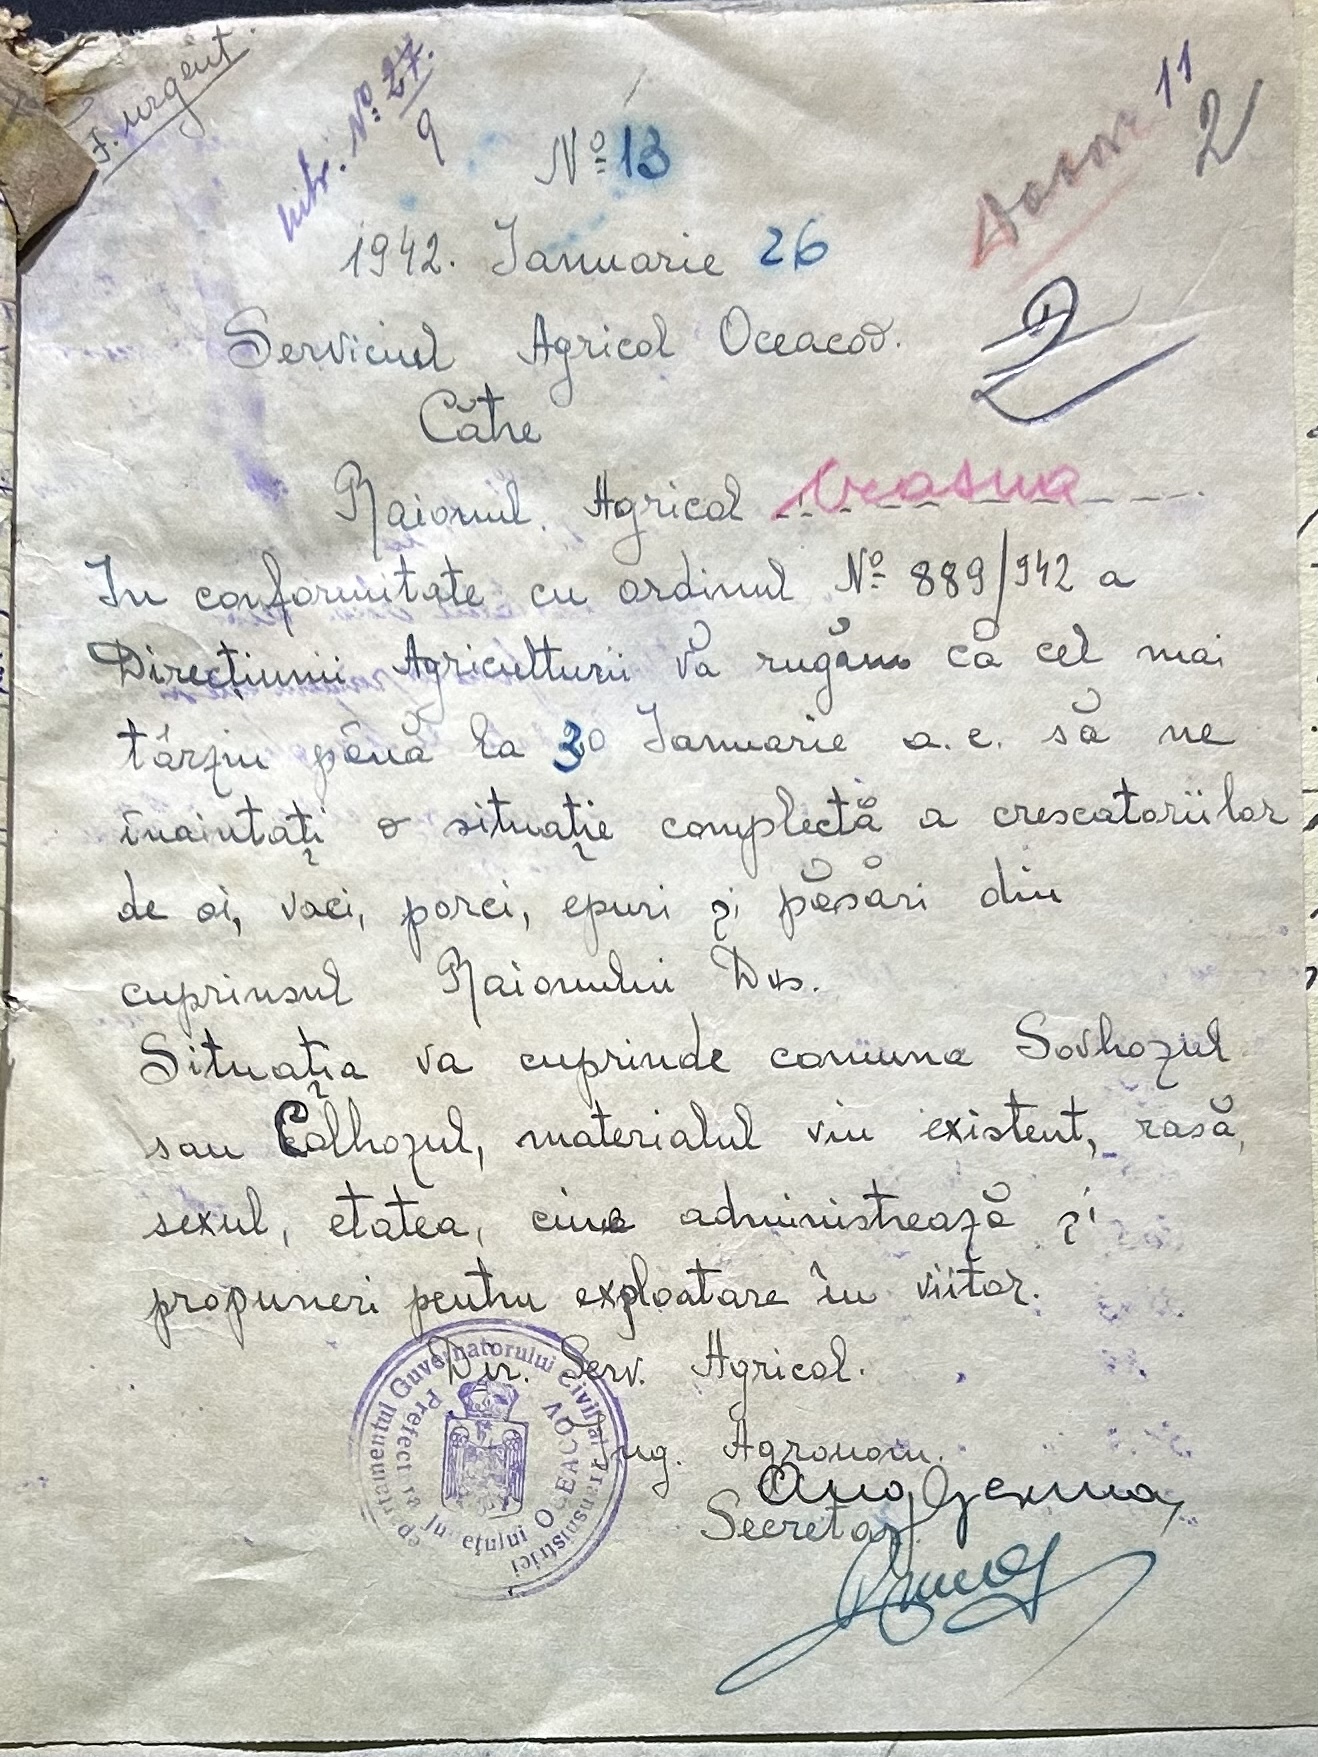 F. urgent.
intr. Nº 27.
9
11
2
Nº 13
Dosar
1942. Ianuarie 26
2
Serviciul Agricol Oceacov.
Către
Raionul. Agricol
In conformitate cu ordinul Nº 889/942 a
Direcțiunii Agriculturii vă rugăm că cel mai
târziu până la 30 Ianuarie a.c. să ne
înaintați o situație complectă a crescatoriilor
de oi, vaci, porci, epuri și păsări din
cuprinsul Raionului Dvs.
Situația va cuprinde comuna Sovhozul
sau Colhozul, materialul viu existent, rasă,
sexul, etatea, cine administrează și
propuneri pentru exploatare în viitor.
Dir. Serv. Agricol.
Ing. Agronom.
Secretar
Guvernatorului Civil al Transnistriei
Prefectura Județului OCEACOV